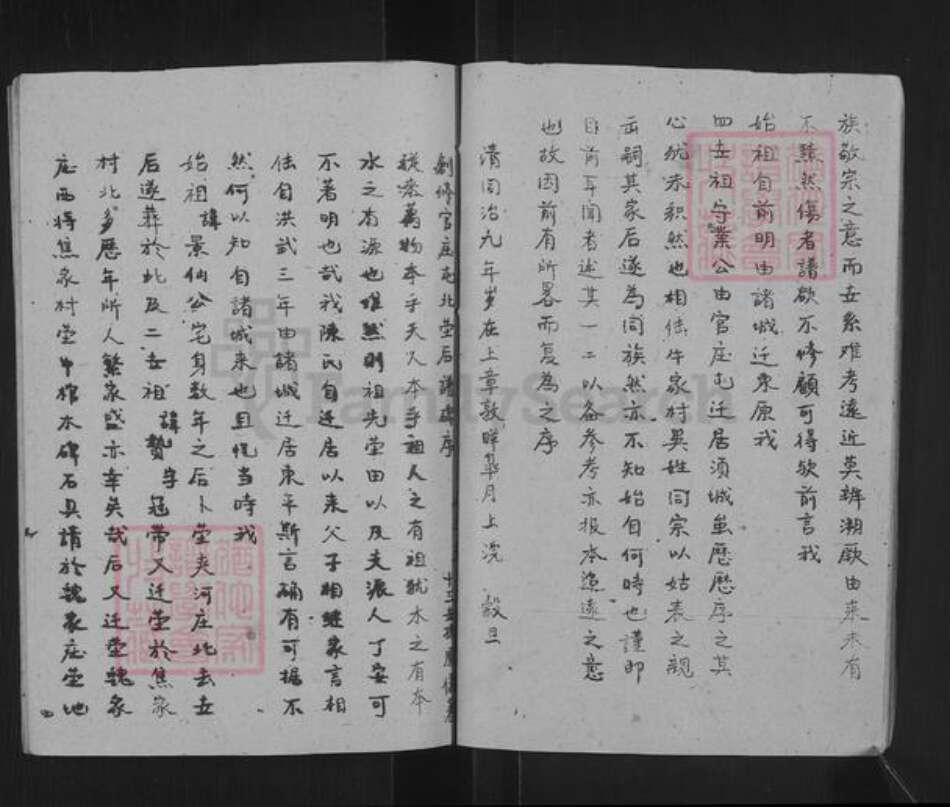 族敬宗之意而世系难考遠近莫辨溯厥由来未有
不黯然傷者譜欲不修顧可得欤前言我
始祖自前明由諸城迁東原我
四世祖守業公由官庄屯迁居须城虽歷歷序之其
心犹未积然也相傳牛家村吴姓同宗以姑表之親
而嗣其家后遂為同族然亦不知始自何時也謹即
目前耳聞者述其一二以备参考亦报本追遠之意
也故因前有所畧而复為之序
清同治九年岁在上章敦牂皋月上浣 穀旦
創修官庄屯北茔后譜碑序
從来萬物本乎天人本乎祖人之有祖犹木之有本
水之有源也虽然则祖先茔田以及支派人丁安可
不著明也哉我陳氏自迁居以来父子相继家言相
傳自洪武三年由諸城迁居東平斯言确有可据不
然何以知自諸城来也且忆当時我
始祖諱景仙公宅身数年之后卜茔夹河庄北去世
后遂葬於北及二世祖諱贄字冠带又迁茔於焦家
村北多歷年所人繁家盛亦幸矣哉后又迁茔魏家
庄西将焦家村茔中棺木碑石具請於魏家庄茔地
FamilySearch